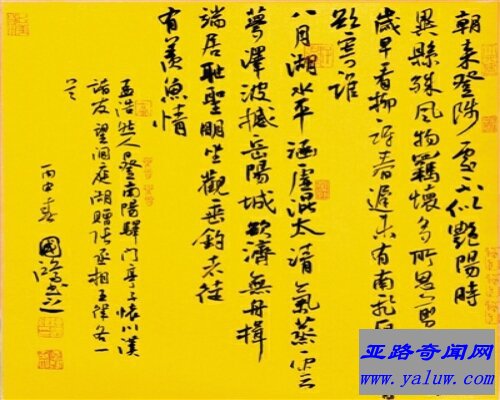 朝来登陟處不似艷陽時
異縣殊風物羈懷多所思剪
歲早看柳訝春遲未有南飛
欲寄誰
八月湖水平涵虛混太清氣蒸雲
夢澤波撼岳陽城欲濟無舟楫
端居恥聖明坐觀垂釣者徒
有羨魚情
孟浩然人日登南陽驛門亭子懷川漢
諸友望洞庭湖贈張丞相五律各一
首
丙申春
亚路奇闻网
www.yaluw.com